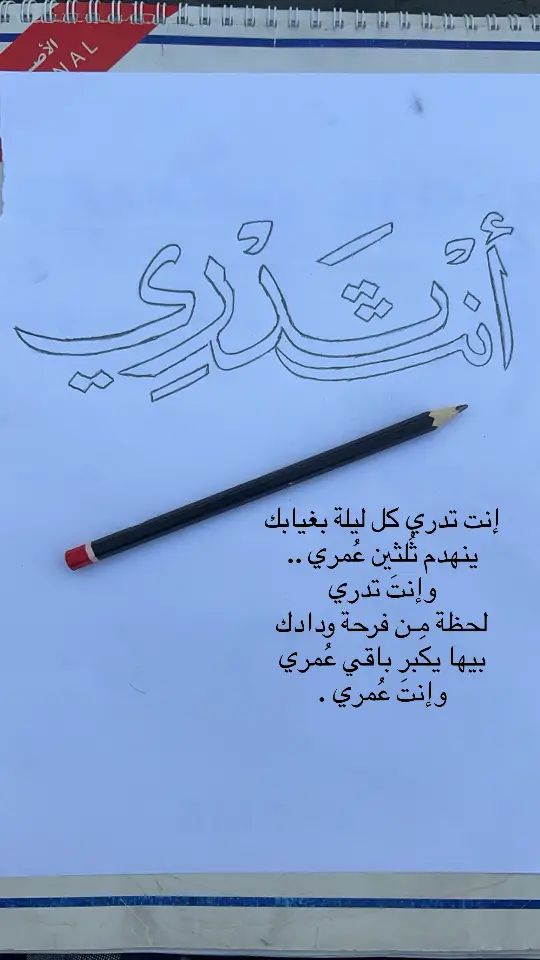 الأص
NAL
أنْت تَدْرِي
إنت تدري كل ليلة بغيابك
ينهدم ثُلثين عُمري ..
وإنتَ تدري
لحظة مِـن فرحة ودادك
بيها يكبر باقي عُمري
وإنتَ عُمري .